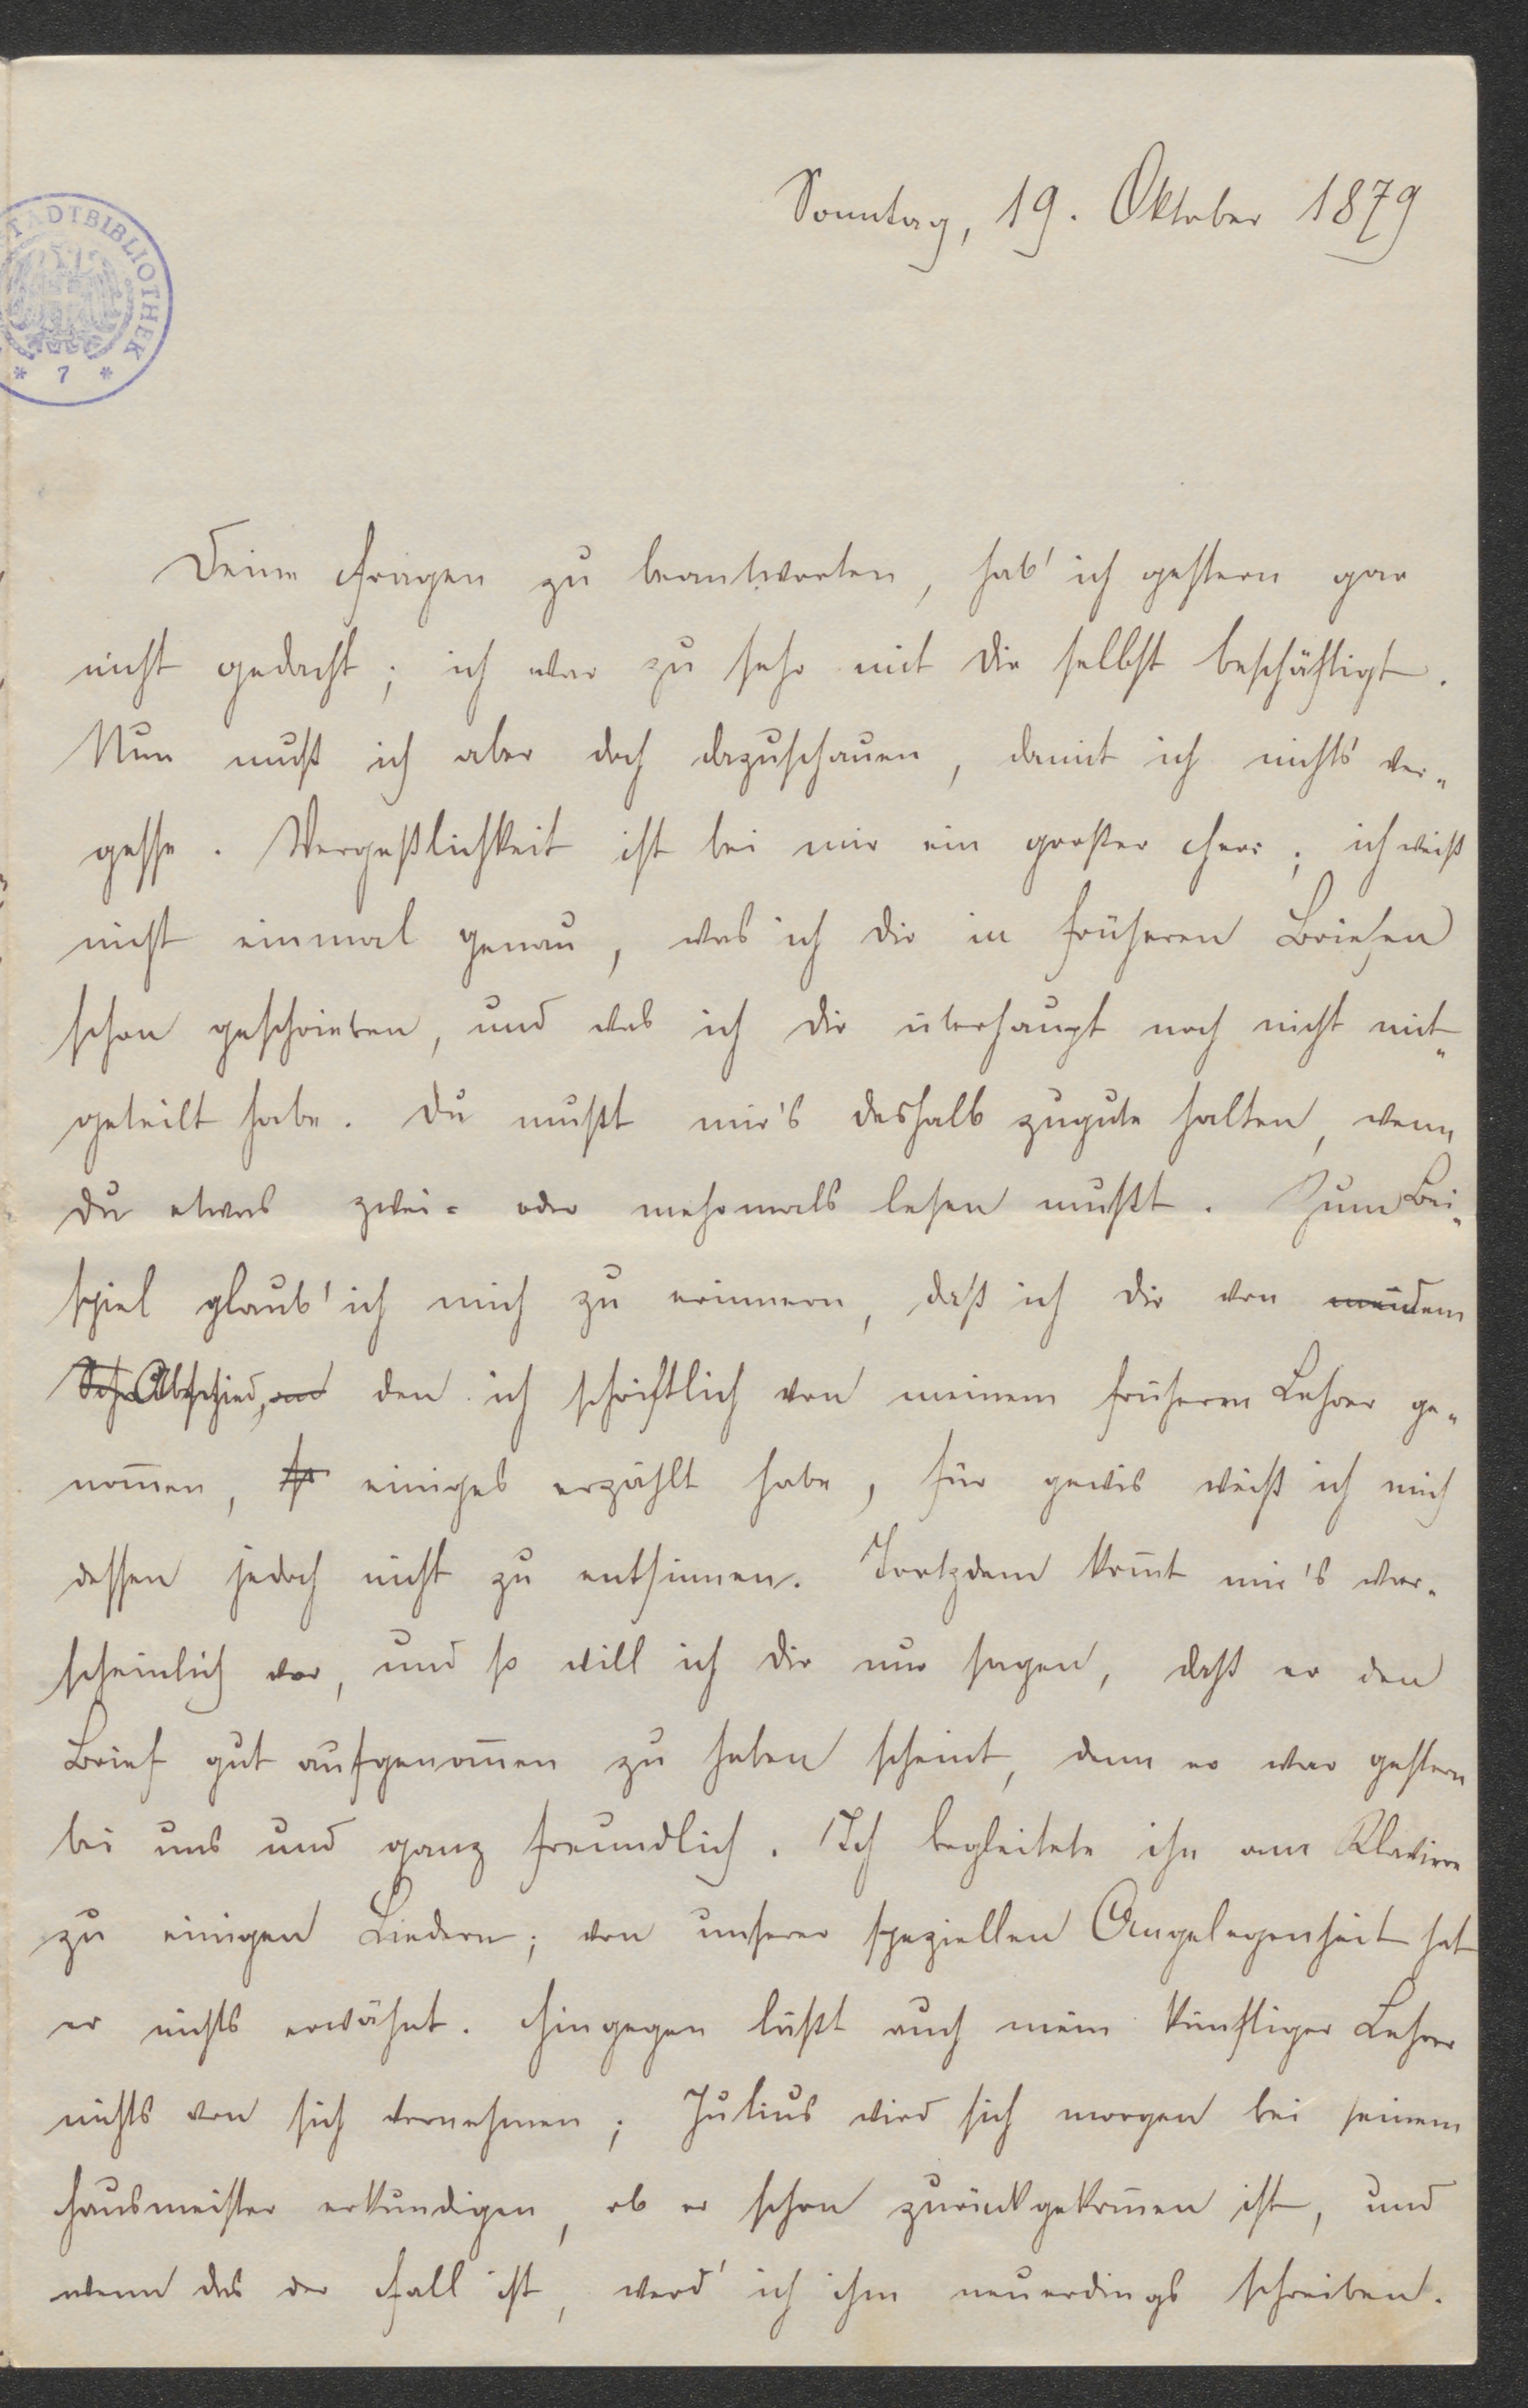 Sonntag, 19. Oktober 1879
STADTBIBLIOTHEK
* 7 *
Deine Fragen zu beantworten, hab' ich gestern gar
nicht gedacht; ich war zu sehr mit dir selbst beschäftigt.
Nun muß ich aber doch dazuschauen, damit ich nichts ver„
gesse. Vergeßlichkeit ist bei mir ein großer Herr; ich weiß
nicht einmal genau, was ich dir in früheren Briefen
schon geschrieben, und was ich dir überhaupt noch nicht mit„
geteilt habe. Du mußt mir's deshalb zugute halten, wenn
du etwas zwei= oder mehrmals lesen mußt. Zum Bei„
spiel glaub' ich mich zu erinnern, daß ich dir von meidem
Abschied, den ich schriftlich von meinem früheren Lehrer ge„
nom̄en, einiges erzählt habe, für gewis weiß ich mich
dessen jedoch nicht zu entsinnen. Trotzdem kom̄t mir's war„
scheinlich vor, und so will ich dir nur sagen, daß er den
Brief gut aufgenom̄en zu haben scheint, denn er war gestern
bei uns und ganz freundlich. Ich begleitete ihn am Klaviere
zu einigen Liedern; von unserer speziellen Angelegenheit hat
er nichts erwähnt. Hingegen läßt auch mein künftiger Lehrer
nichts von sich vernehmen; Julius wird sich morgen bei seinem
Hausmeister erkundigen, ob er schon zurückgekom̄en ist, und
wenn das der Fall ist, werd' ich ihm neuerdings schreiben.